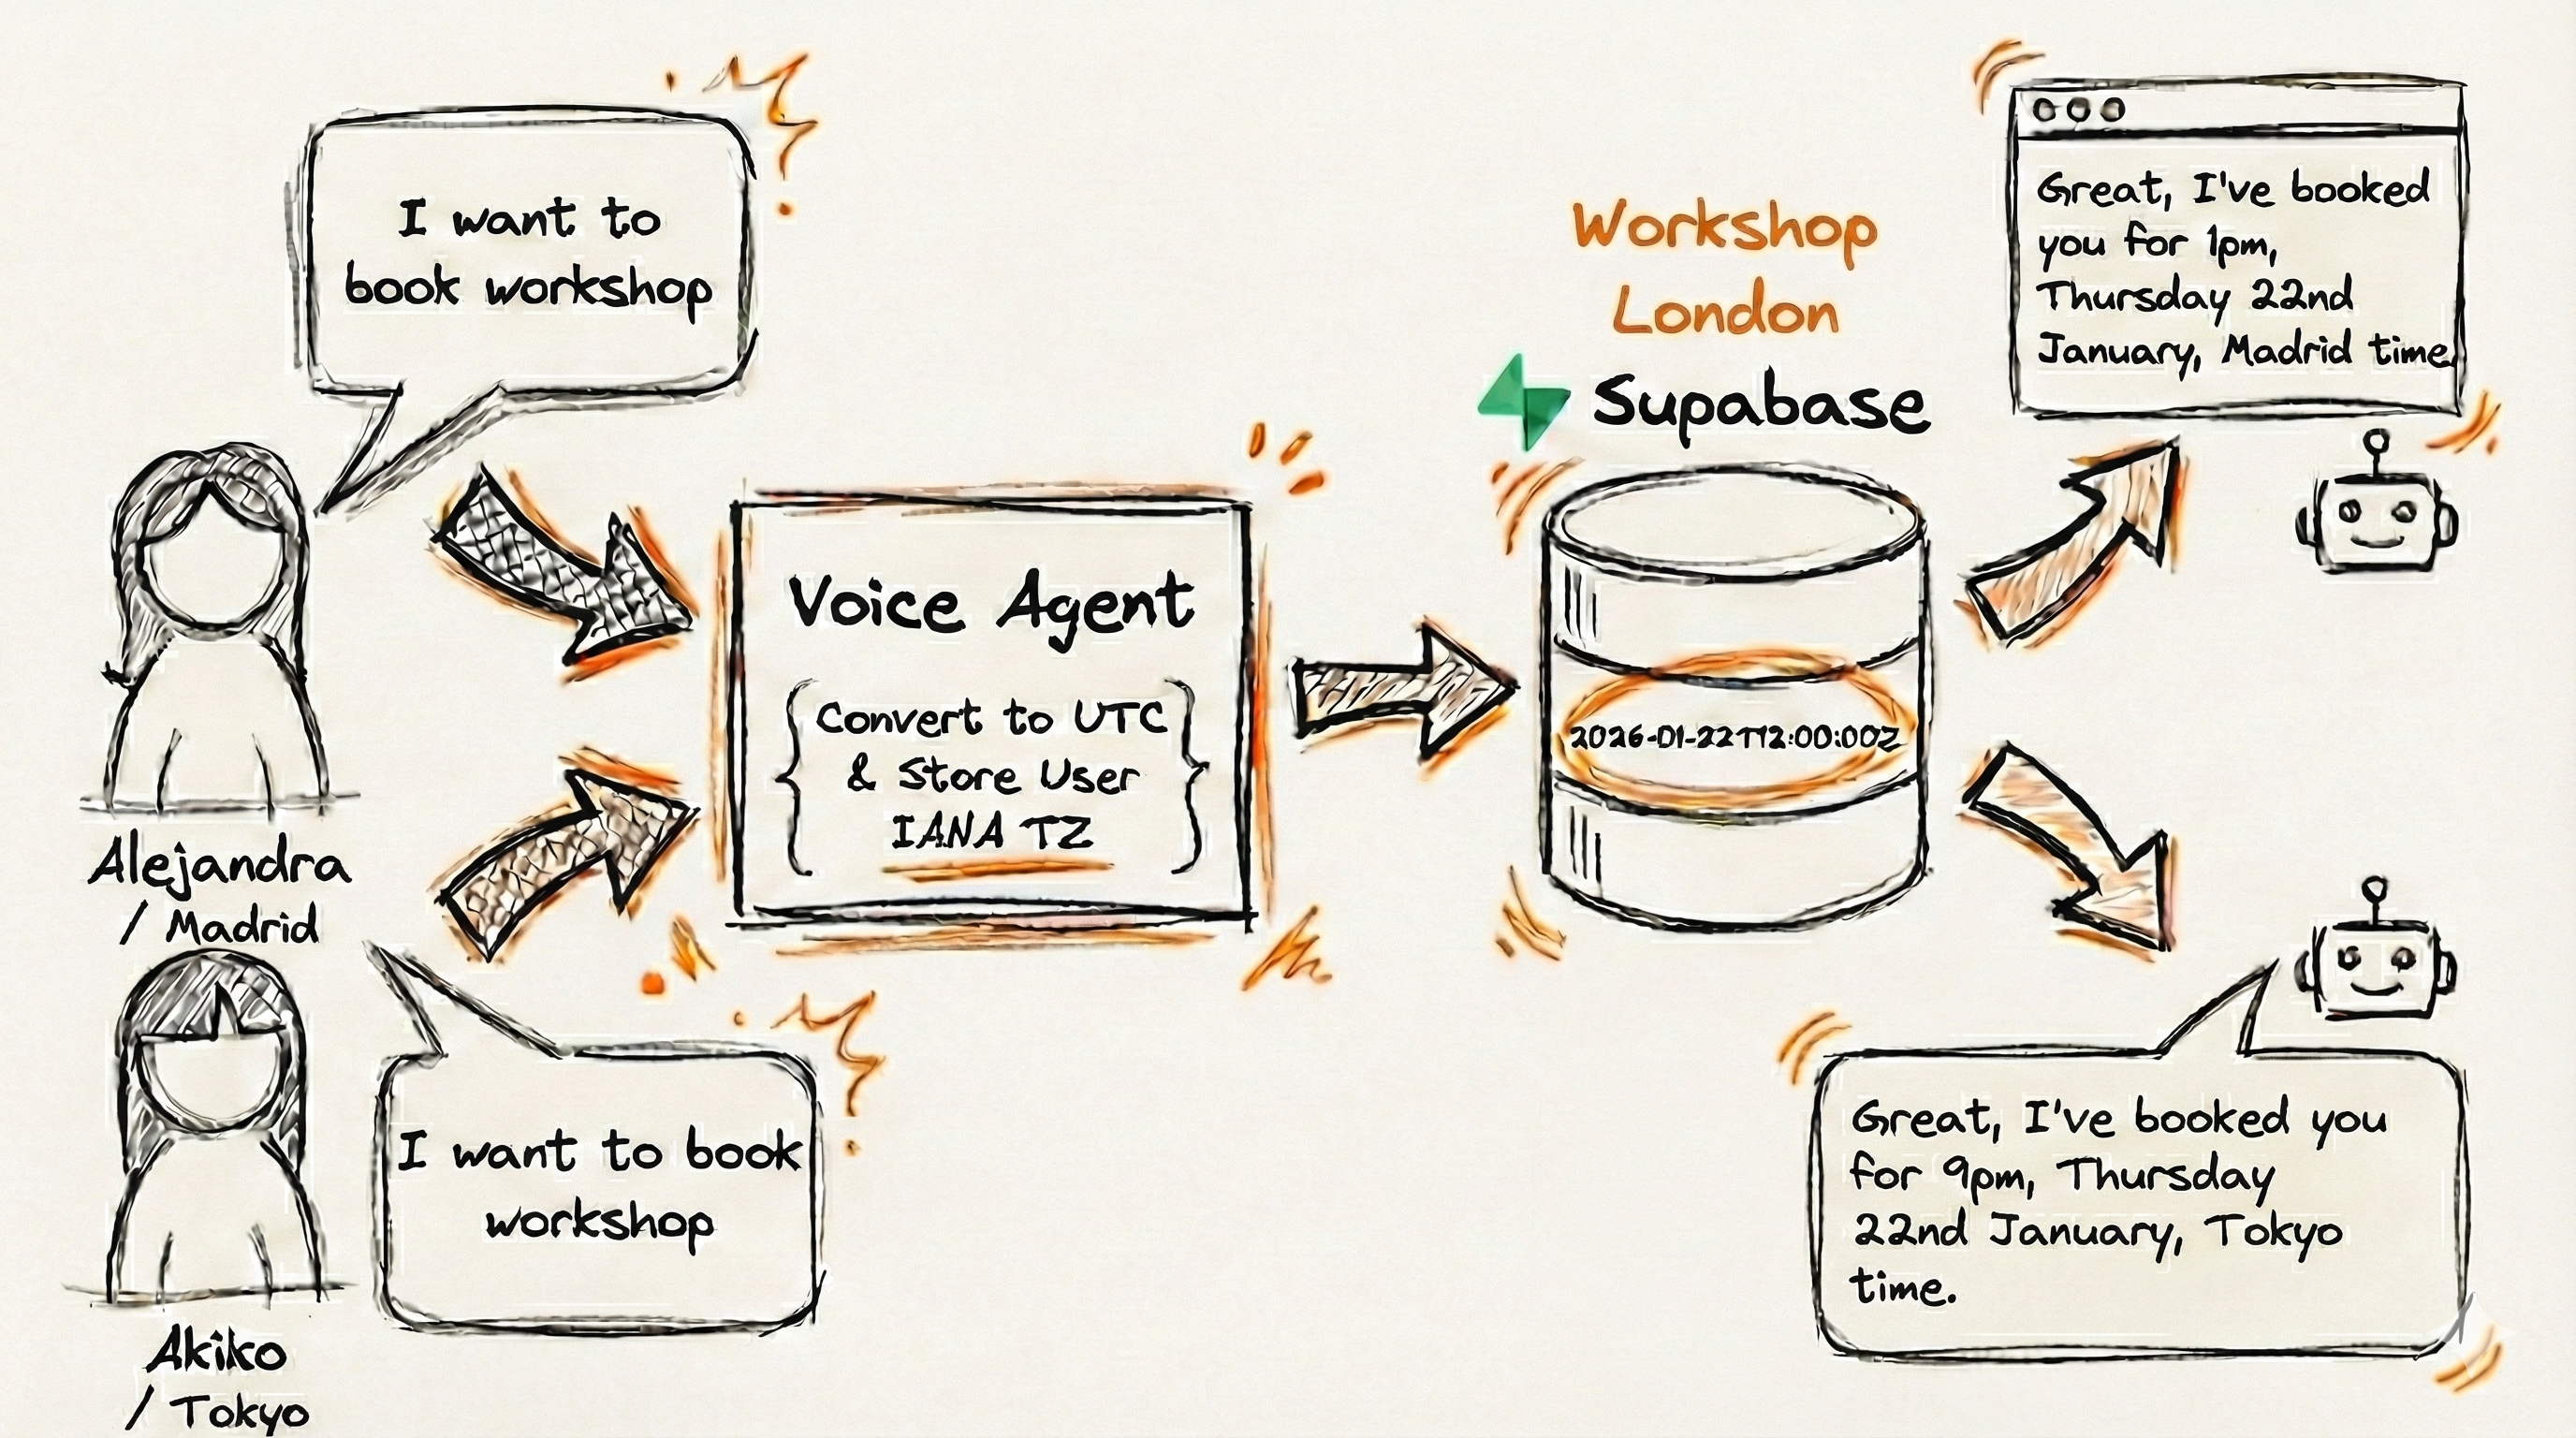 I want to
book workshop
Alejandra
/ Madrid
I want to book
workshop
Akiko
/ Tokyo
Voice Agent
{ Convert to UTC
& Store User
IANA TZ }
Workshop
London
Supabase
2026-01-22T12:00:00Z
Great, I've booked
you for 1pm,
Thursday 22nd
January, Madrid time.
Great, I've booked you
for 9pm, Thursday
22nd January, Tokyo
time.